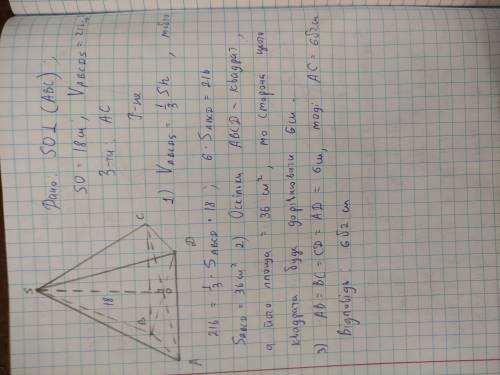 Дано: SO⊥(ABC);
SO = 18см, V ABCDS = 216
З-ти: AC
Р-ня
1) V ABCDS = 1/3 Sh, тобто
216 = 1/3 · S ABCD · 18; 6 · S ABCD = 216
S ABCD = 36см² 2) Оскільки ABCD - квадрат,
а його площа = 36 см², то сторона цього
квадрата буде дорівнювати 6см.
3) AB = BC = CD = AD = 6см, тоді AC = 6√2см
Відповідь: 6√2 см
S
18
B
C
O
A
D